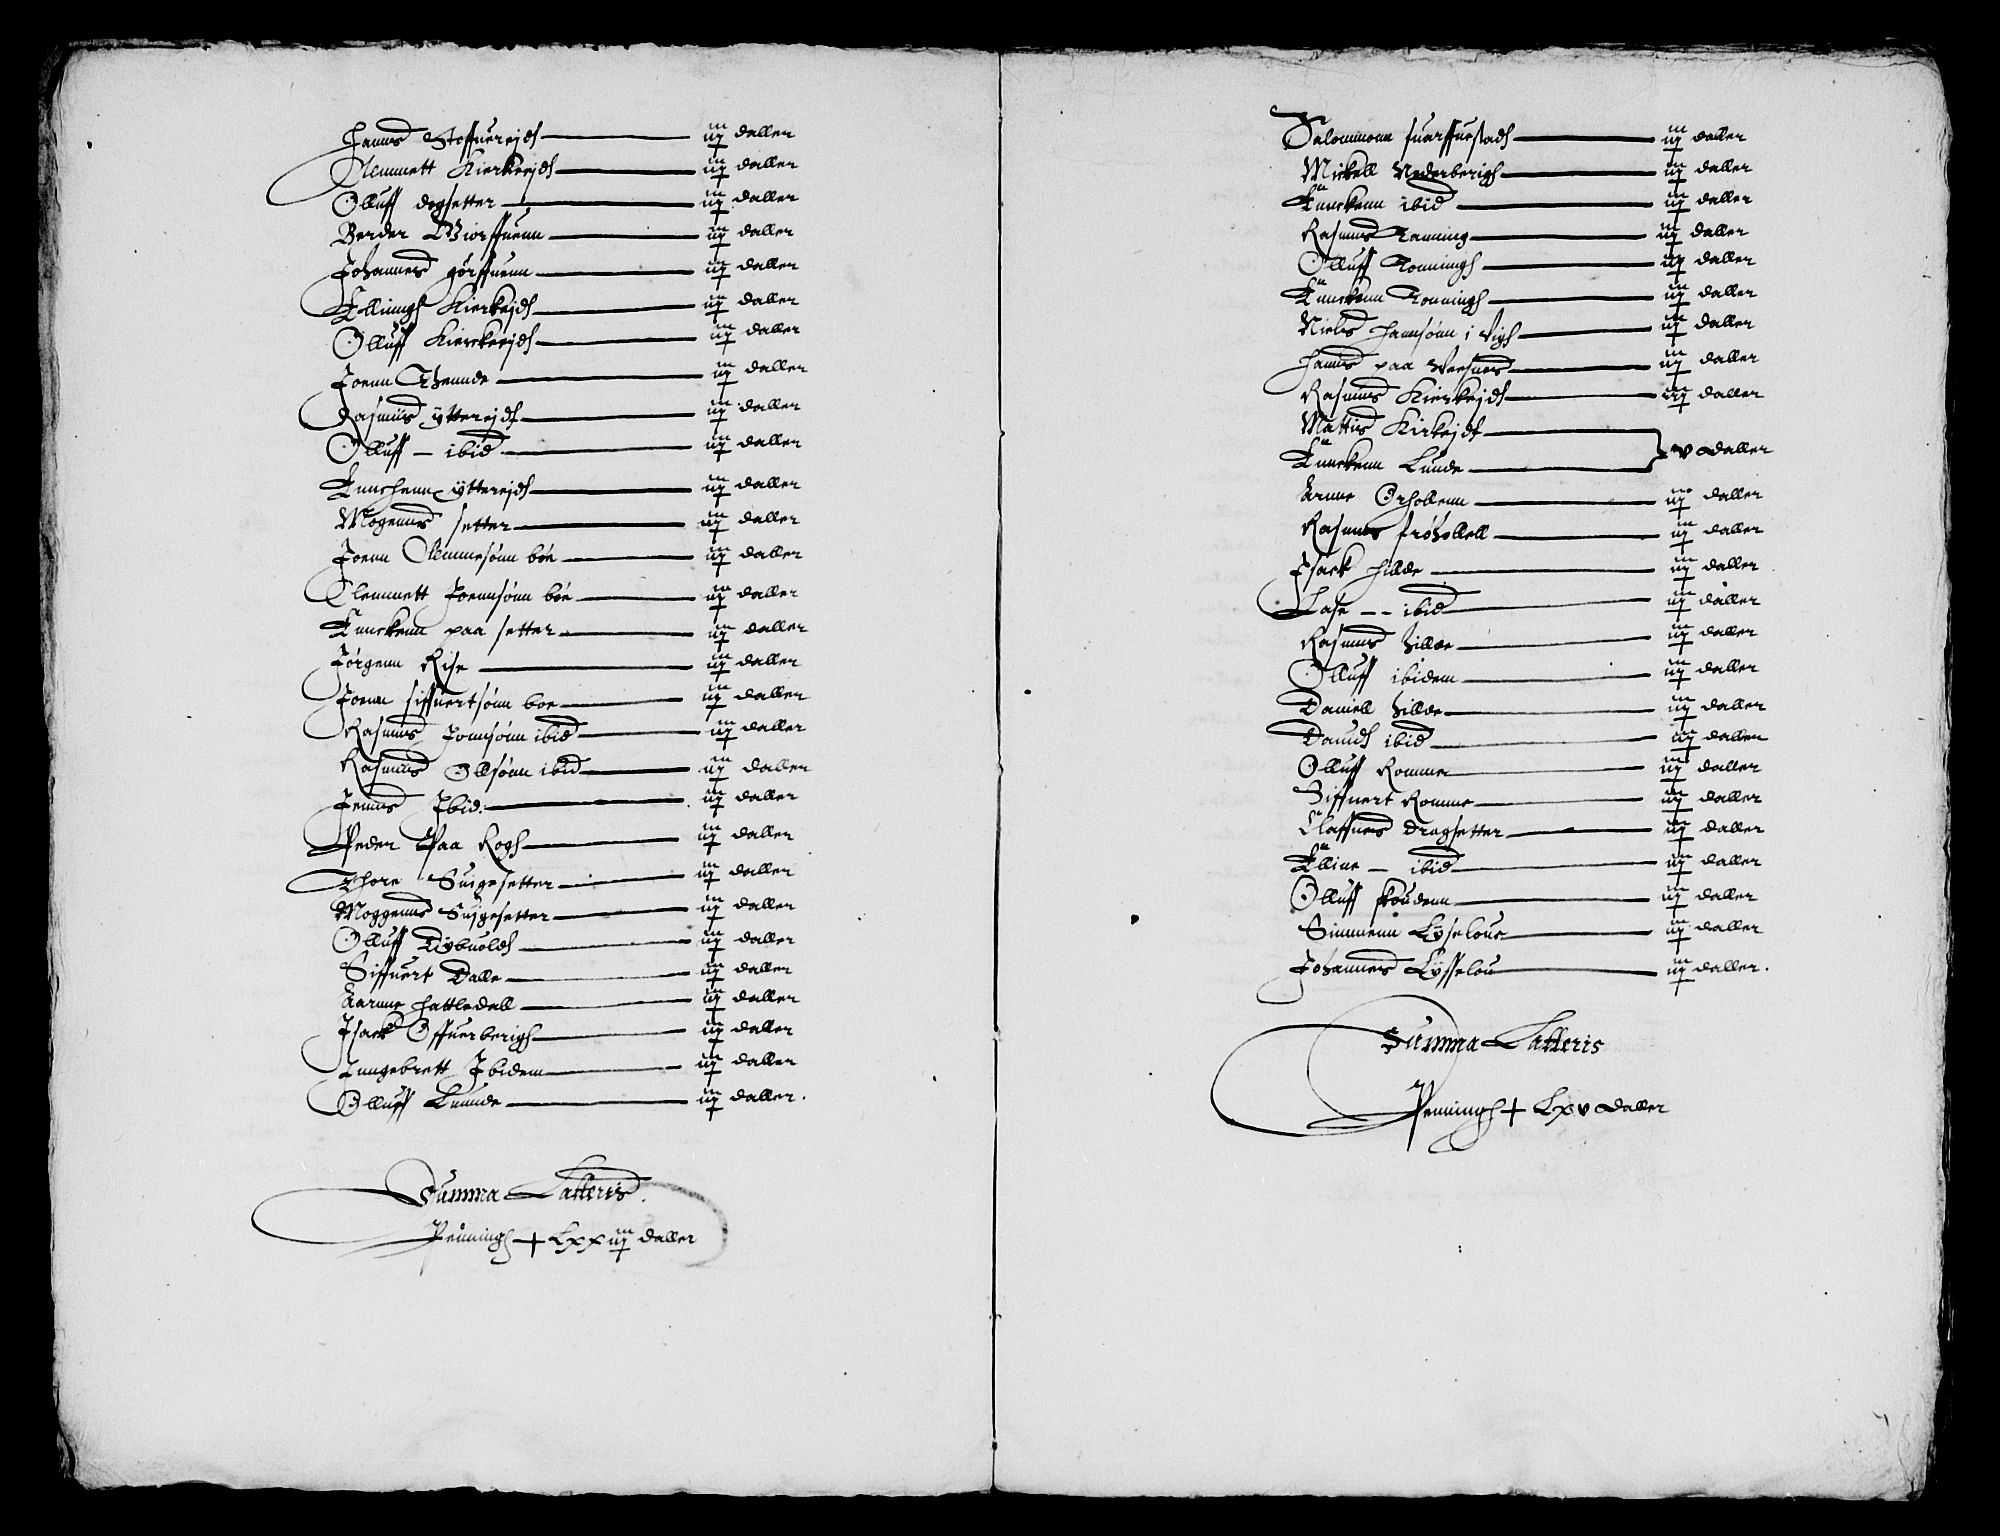 Hanns Stoffuerejdh iij daller
Clemmett Kierkejdh iij daller
Olluff dogsetter iij daller
Berder Biorffuenn iij daller
Johannes gørffuenn iij daller
Ellingh Kierkejdh iij daller
Olluff Kierckeejdh iij daller
Joenn Thunde iij daller
Rasmus ytterejdh iij daller
Olluff – ibid iij daller
Knuchenn ytterejdh iij daller
Mogenns setter iij daller
Joenn Clemmesønn bøe iij daller
Clemmett Joennsønn bøe iij daller
Knuckenn paa setter iij daller
Jørgenn Rise iij daller
Joenn siffuertsønn boe iij daller
Rasmus Jonnsønn ibid iij daller
Rasmus Ollsønn ibid iij daller
Jenns Ibid. iij daller
Peder Paa Rogh iij daller
Thore Suigesetter iij daller
Moggenns Suigesetter iij daller
Olluff Tybuoldh iij daller
Siffuert Dalle iij daller
Aarnne hattledall iij daller
Isack Offuerberigh iij daller
Inngebrett Ibidem iij daller
Olluff Lunnde iij daller.
Summa Latteris.
Penningh + Lxxiij daller
Salommonn Huarffuestadh iij daller
Mickell Nederberigh iij daller
Knuckenn ibid iij daller
Rasmus Ronning iij daller
Olluff Ronningh iij daller
Knuckenn Ronningh iij daller
Niels Hannsønn i Vigh iij daller
Hanns paa Vestnes iij daller
Rasmus Kierkejdh iij daller
Mattis Kirkejdh
Knuckenn Lunde v daller
Arnne Orhollenn iij daller
Rasmus frøhollell iij daller
Isack Hillde iij daller
Lase – – ibid iij daller
Rasmus hillde iij daller
Olluff ibidem iij daller
Daniell hillde iij daller
Dauidh ibid iij daller
Olluff Romme iij daller
Siffuert Romme iij daller
Claffues dragsetter iij daller
Elline – ibid iij daller
Olluff skoudenn iij daller
Simmenn Lyselour iij daller
Johannes Lysselou iij daller.
Summa Latteris
Penningh + Lxv daller